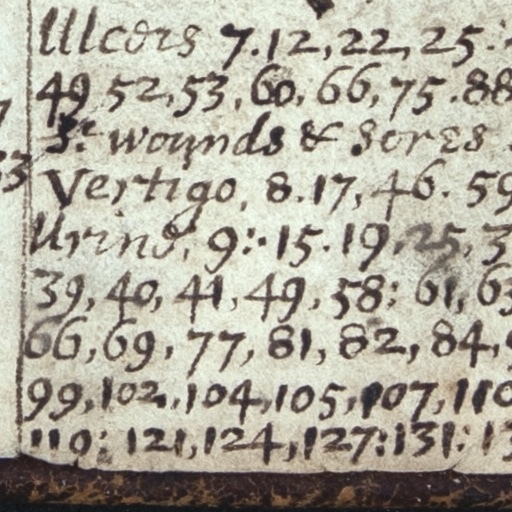 Ulcers 7.12,22,25.
49,52,53,60,66,75.88
wounds & Sores
Vertigo, 8.17,46.59
Urine, 9:.15.19,25,3
39,40,41,49,58:61,63
66,69,77,81,82,84,9
99,102,104,105,107,110
119:121,124,127:131:13